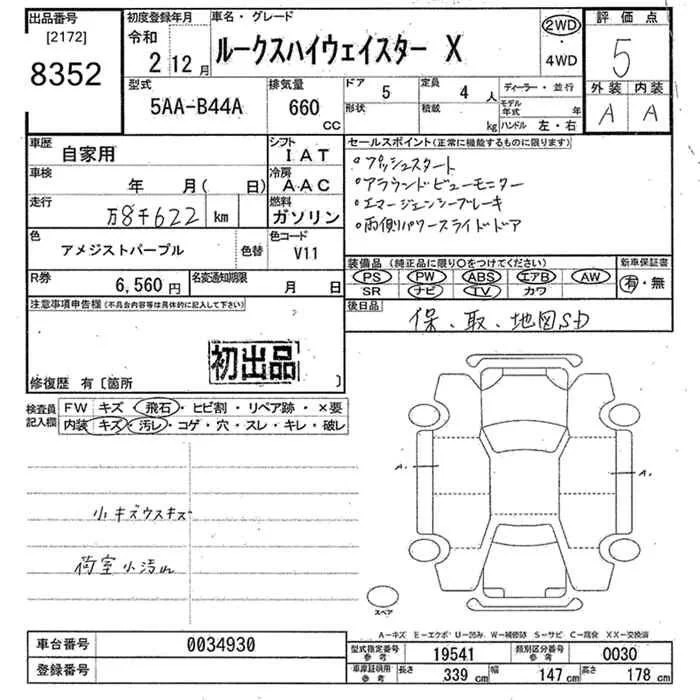 出品番号
[2172]
8352
初度登録年月
令和
2 12月
車名・グレード
ルークスハイウェイスター X
2WD
・
4WD
評価点
5
外装 内装
A A
型式
5AA-B44A
排気量
660
CC
ドア
5
形状
定員
4 人
積載
kg
ディーラー・並行
モデル年式 年
ハンドル 左・右
車歴
自家用
シフト
IAT
車検
年 月( 日)
冷房
AAC
走行
万8千622 km
燃料
ガソリン
色
アメジストパープル
色替
色コード
V11
R券
6,560 円
名変通知期限
月 日
セールスポイント(正常に機能するものに限ります)
・プッシュスタート
・アラウンドビューモニター
・エマージェンシーブレーキ
・両側パワースライドドア
装備品(純正品に限り○をつけてください)
PS PW ABS エアB AW
SR ナビ TV カワ
新車保証書
有・無
後日品
保、取、地図SD
注意事項申告欄(不具合内容等は具体的に記入して下さい)
初出品
修復歴 有〔箇所 〕
検査員記入欄
FW キズ・飛石・ヒビ割・リペア跡・×要
内装 キズ・汚レ・コゲ・穴・スレ・キレ・破レ
小キズウスキズ
荷室小汚れ
A.
A.
スペア
A-キズ E-エクボ U-凹み W-補修跡 S-サビ C-腐食 XX-交換済
車台番号
0034930
登録番号
型式指定番号
参考
19541
類別区分番号
参考
0030
車庫証明用
参考
長さ
339 cm
幅
147 cm
高さ
178 cm